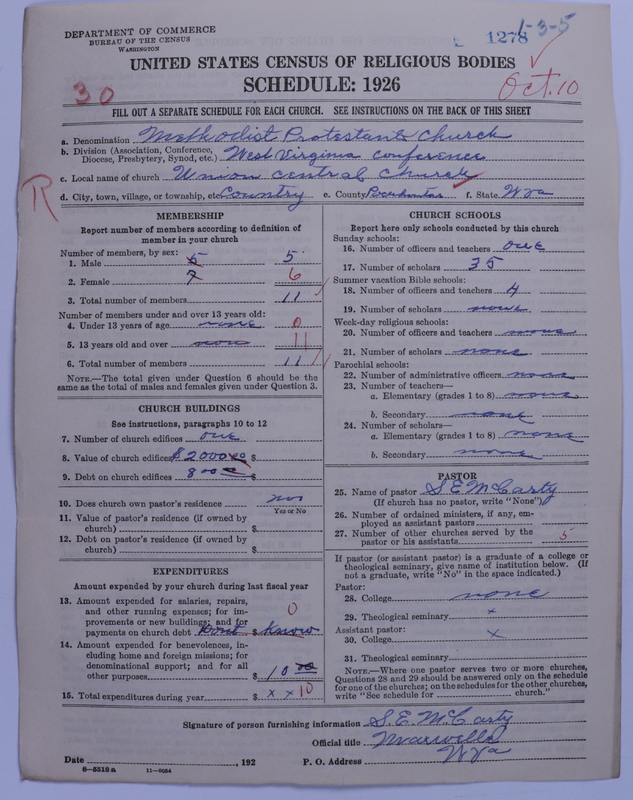 DEPARTMENT OF COMMERCE
BUREAU OF THE CENSUS
WASHINGTON
1278
1-3-5
UNITED STATES CENSUS OF RELIGIOUS BODIES
SCHEDULE: 1926
30
Oct. 10
FILL OUT A SEPARATE SCHEDULE FOR EACH CHURCH. SEE INSTRUCTIONS ON THE BACK OF THIS SHEET
a. Denomination Methodist Protestant Church
b. Division (Association, Conference, Diocese, Presbytery, Synod, etc.) West Virginia Conference
c. Local name of church Union Central Church
R
d. City, town, village, or township, etc. Country e. County Pocahontas f. State W Va
MEMBERSHIP
Report number of members according to definition of
member in your church
Number of members, by sex:
1. Male 5 5
2. Female 7 6
3. Total number of members 11
Number of members under and over 13 years old:
4. Under 13 years of age none 0
5. 13 years old and over 11
6. Total number of members 11
NOTE.—The total given under Question 6 should be the
same as the total of males and females given under Question 3.
CHURCH BUILDINGS
See instructions, paragraphs 10 to 12
7. Number of church edifices one
8. Value of church edifices $2000.00 $
9. Debt on church edifices $
10. Does church own pastor's residence
Yes or No
11. Value of pastor's residence (if owned by
church) $
12. Debt on pastor's residence (if owned by
church) $
EXPENDITURES
Amount expended by your church during last fiscal year
13. Amount expended for salaries, repairs,
and other running expenses; for im-
provements or new buildings; and for
payments on church debt Dont $ know 0
14. Amount expended for benevolences, in-
cluding home and foreign missions; for
denominational support; and for all
other purposes $ 10 00
15. Total expenditures during year $ x x 10
CHURCH SCHOOLS
Report here only schools conducted by this church
Sunday schools:
16. Number of officers and teachers one
17. Number of scholars 35
Summer vacation Bible schools:
18. Number of officers and teachers 4
19. Number of scholars none
Week-day religious schools:
20. Number of officers and teachers none
21. Number of scholars none
Parochial schools:
22. Number of administrative officers none
23. Number of teachers—
a. Elementary (grades 1 to 8) none
b. Secondary none
24. Number of scholars—
a. Elementary (grades 1 to 8) none
b. Secondary none
PASTOR
25. Name of pastor S E McCarty
(If church has no pastor, write "None")
26. Number of ordained ministers, if any, em-
ployed as assistant pastors
27. Number of other churches served by the
pastor or his assistants 5
If pastor (or assistant pastor) is a graduate of a college or
theological seminary, give name of institution below. (If
not a graduate, write "No" in the space indicated.)
Pastor:
28. College none
29. Theological seminary x
Assistant pastor:
30. College x
31. Theological seminary
NOTE.—Where one pastor serves two or more churches,
Questions 28 and 29 should be answered only on the schedule
for one of the churches; on the schedules for the other churches,
write "See schedule for church."
Signature of person furnishing information S. E. McCarty
Official title
Date , 192
P. O. Address W Va
6—5518a 11—9034